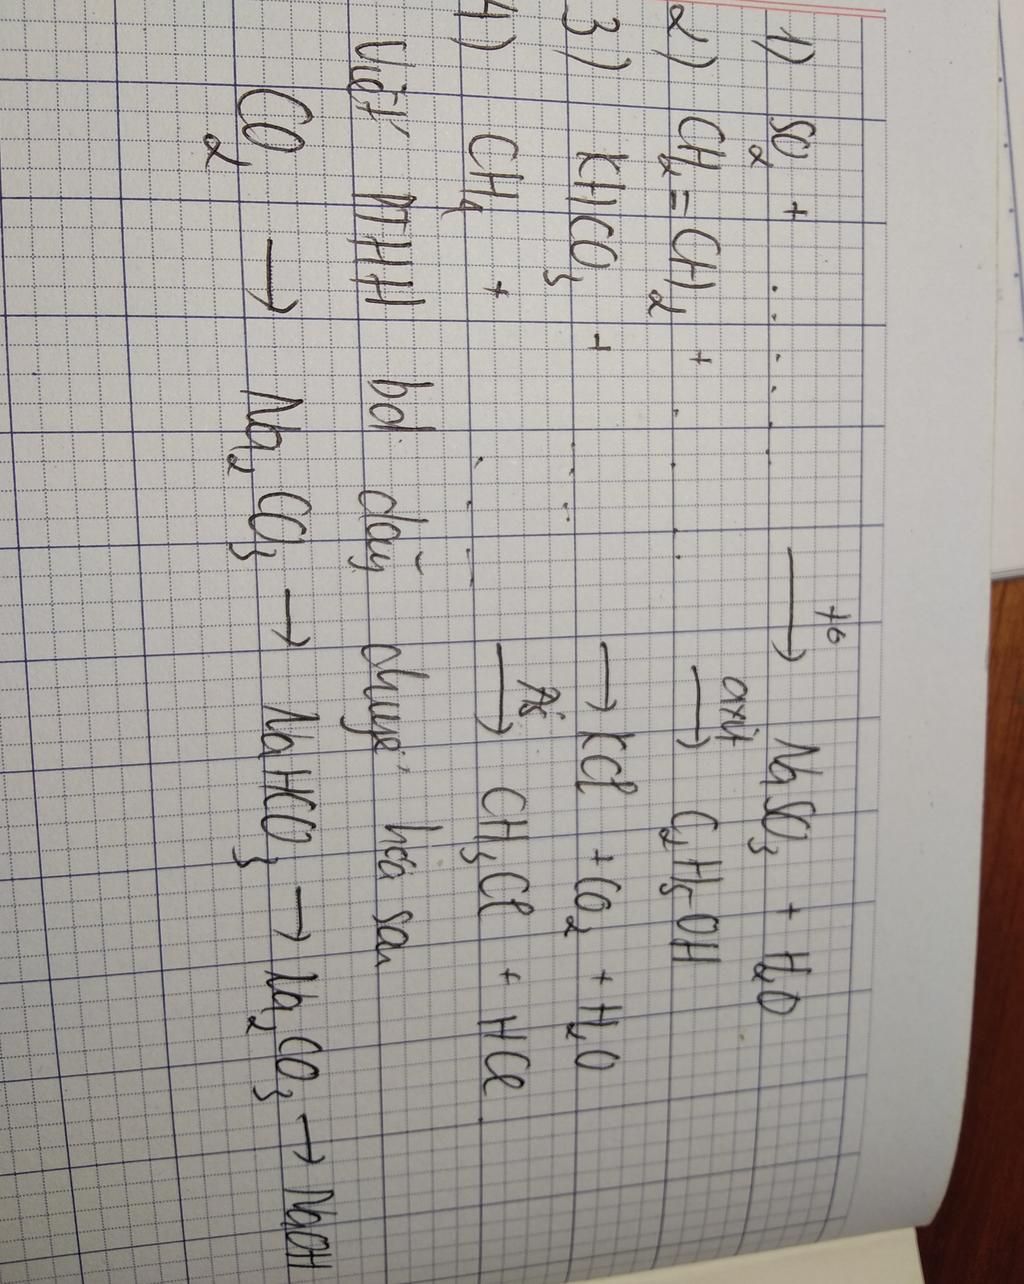 1) SO2 + ..... t° → NaSO3 + H2O
2) CH2=CH2 + .... axit → C2H5-OH
3) KHCO3 + ... → KCl + CO2 + H2O
4) CH4 + ... As → CH3Cl + HCl
Viết PTHH bd dãy chuyể hóa sau
CO2 → Na2CO3 → NaHCO3 → Na2CO3 → NaOH